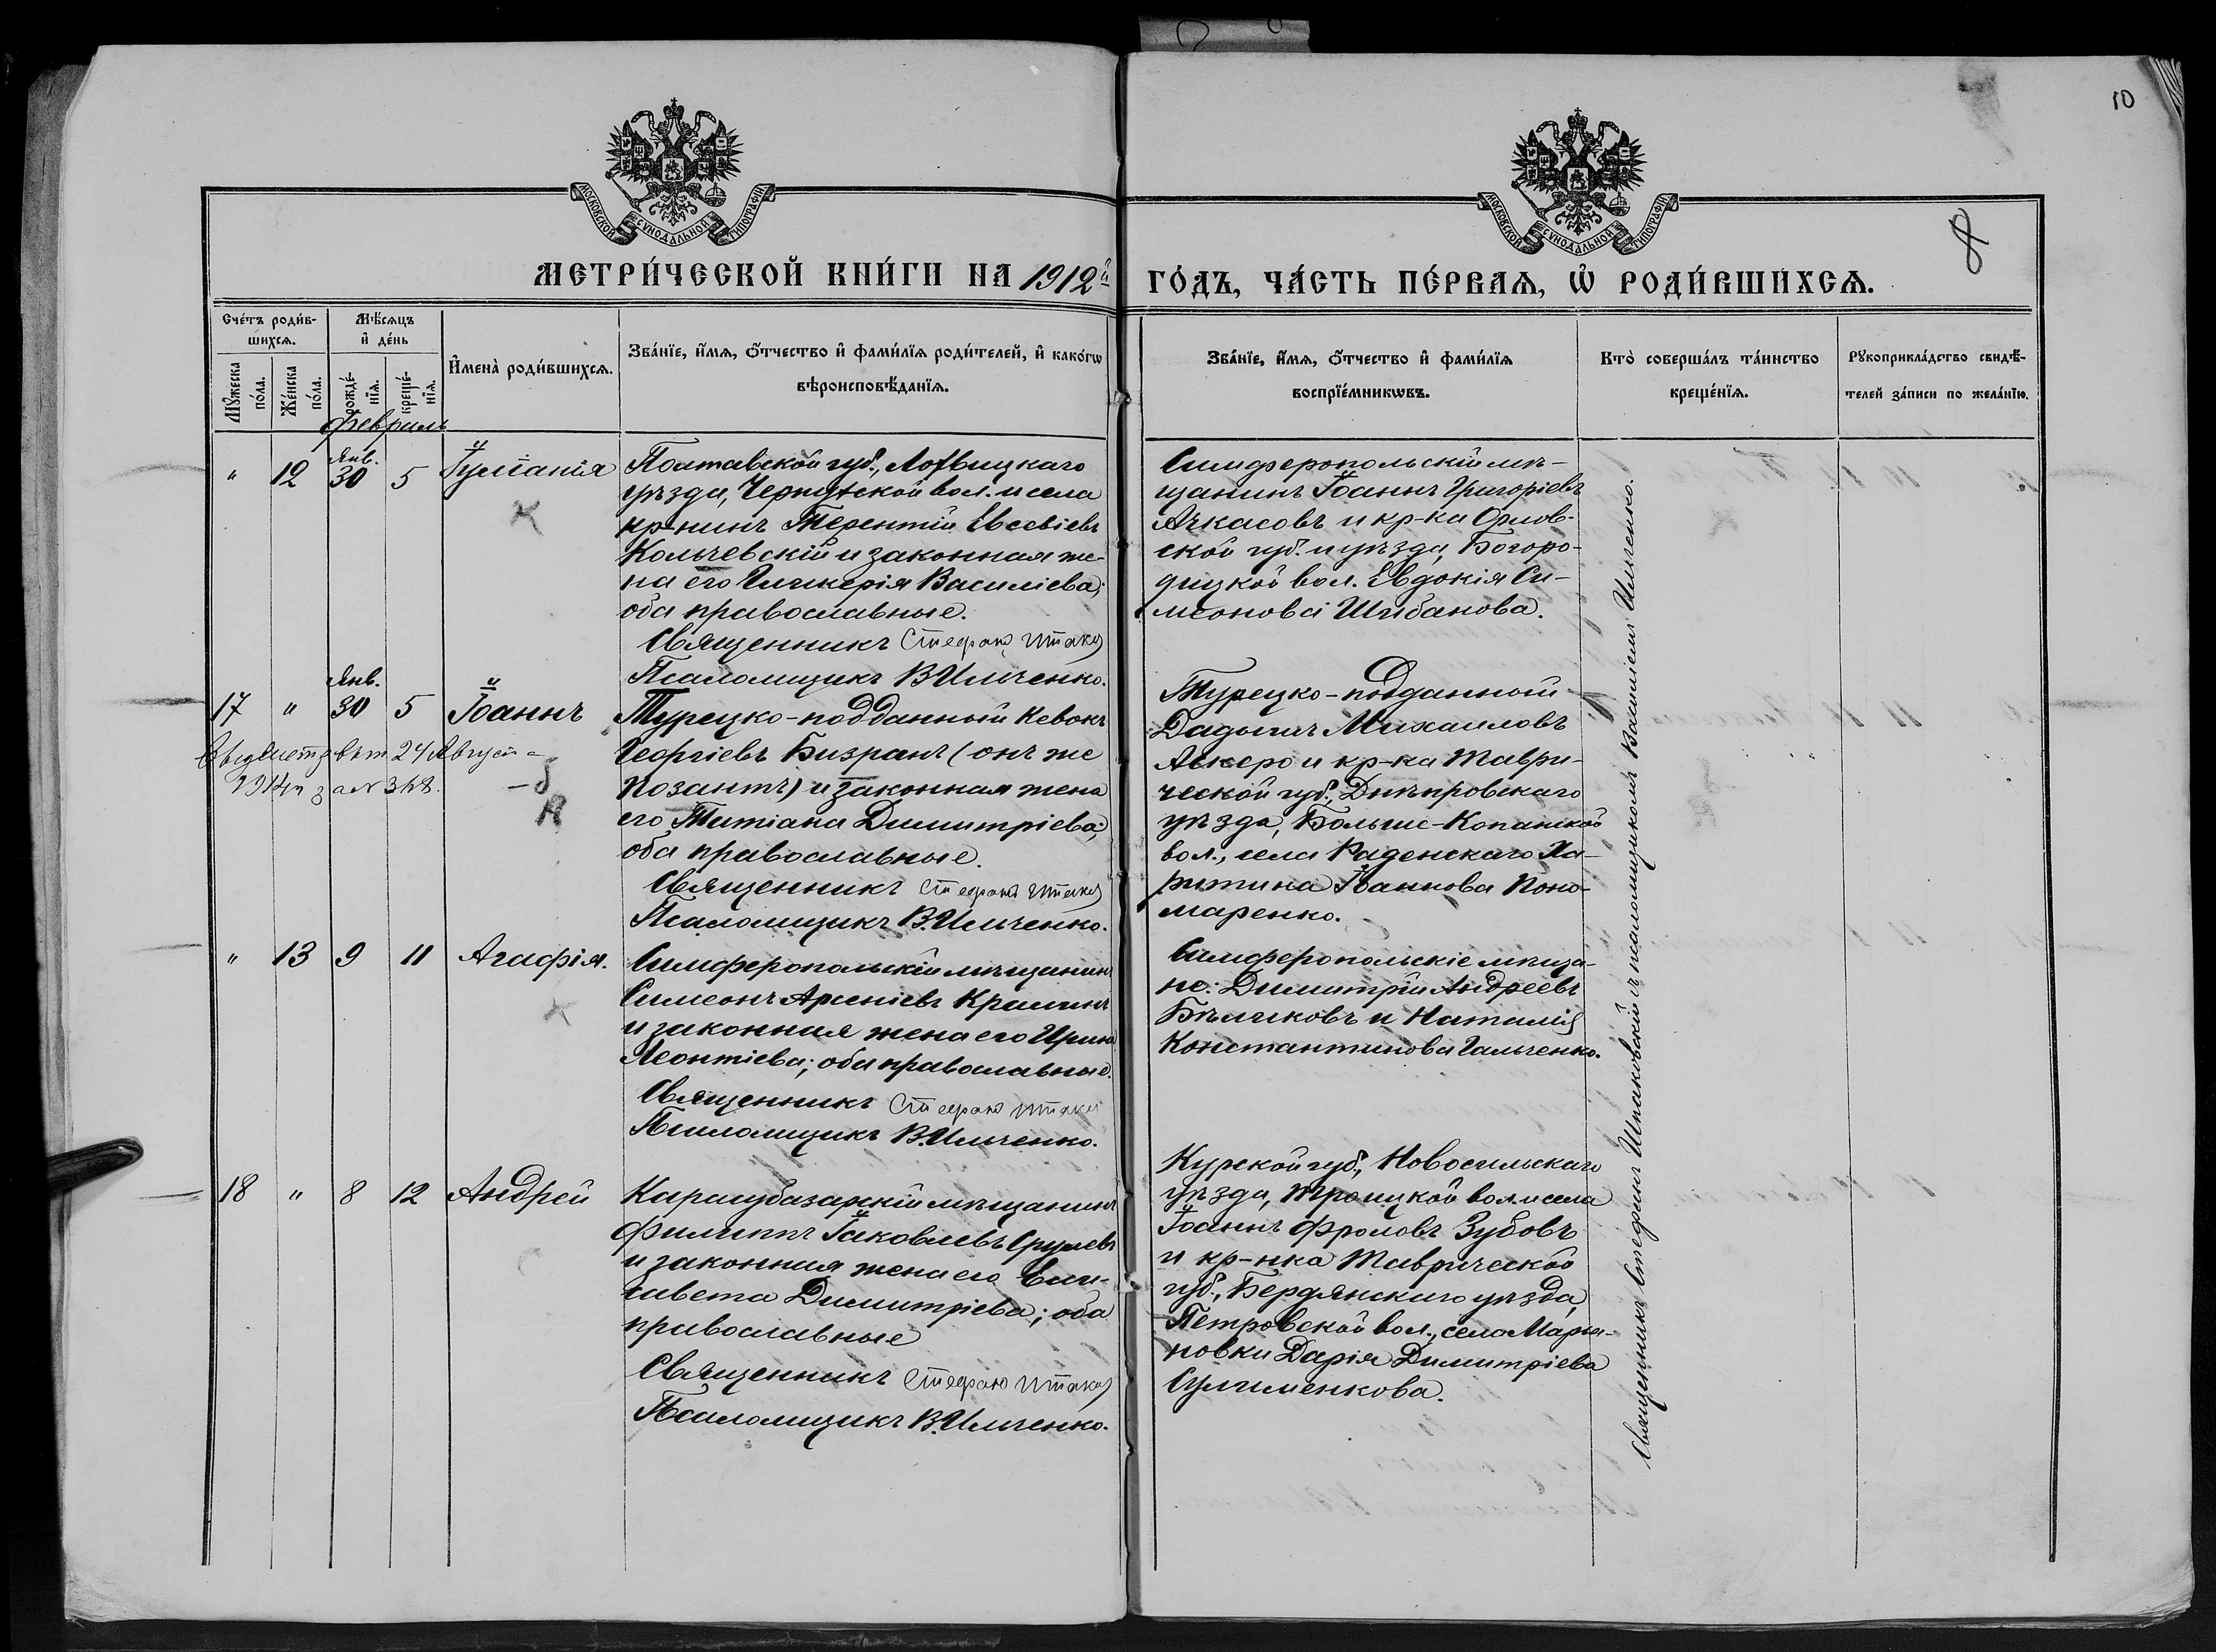 10
8
МОСКОВСКОЙ СѴНОДАЛЬНОЙ ТИПОГРАФІИ
МОСКОВСКОЙ СѴНОДАЛЬНОЙ ТИПОГРАФІИ
МЕТРИ́ЧЕСКОЙ КНИ́ГИ НА 1912й
ГО́ДЪ, ЧА́СТЬ ПЕ́РВАѦ, Ѡ҆ РОДИ́ВШИХСѦ.
Сче́тъ роди́в-
шихсѧ.
Мꙋжеска по́ла.
Же́нска по́ла.
Мѣ́сѧцъ
и҆ де́нь
рожде́-
нїѧ.
креще́-
нїѧ.
И҆мена̀ роди́вшихсѧ.
Зва́нїе, и҆́мѧ, ѻ҆́тчество и҆ фами́лїѧ роди́телей, и҆ како́гѡ
вѣроисповѣ́данїѧ.
Зва́нїе, и҆́мѧ, ѻ҆́тчество и҆ фами́лїѧ
воспрїе́мникѡвъ.
Кто̀ соверша́лъ та́инство
креще́нїѧ.
Рꙋкоприкла́дство свидѣ́-
телей за́писи по жела́нїю.
Февраль
" 12 Янв. 30 5 Іуліанія
Полтавской губ., Лохвицкаго
уѣзда, Чернухской вол. и села
кр-нинъ Терентій Евсевіевъ
Кольчевскій и законная же-
на его Гликерія Василіева;
оба православные.
Священникъ Стефанъ Шпак
Псаломщикъ В. Ильченко.
Симферопольскій мѣ-
щанинъ Іоаннъ Григоріевъ
Ачкасовъ и кр-ка Орлов-
ской губ. и уѣзда, Богоро-
дицкой вол. Евдокія Си-
меонова Шибанова.
17 " Янв. 30 5 Іоаннъ
24 Августа
за № 368.
Турецко-подданный Кевокъ
Георгіевъ Бизранъ (онъ же
Позантъ) и законная жена
его Татіана Димитріева;
оба православные.
Священникъ Стефанъ Шпак
Псаломщикъ В. Ильченко.
Турецко-подданный
Михаиловъ
Аскеро и кр-ка Таври-
ческой губ., Днѣпровскаго
уѣзда, Больше-Копанской
вол., села Раденскаго Ха-
ритина Іоаннова Поно-
маренко.
" 13 9 11 Агафія.
Симферопольскій мѣщанинъ
Симеонъ Арсеніевъ
и законная жена его Ирина
Леонтіева; оба православные.
Священникъ Стефанъ Шпак
Псаломщикъ В. Ильченко.
Симферопольскіе мѣща-
не: Димитрій Андреевъ
Бѣликовъ и Наталія
Константинова Гальченко.
18 " 8 12 Андрей
Карасубазарскій мѣщанинъ
Филиппъ Іаковлевъ
и законная жена его Ели-
савета Димитріева; оба
православные
Священникъ Стефанъ Шпак
Псаломщикъ В. Ильченко.
Курской губ., Новосильскаго
уѣзда, Троицкой вол. и села
Іоаннъ Фроловъ Зубовъ
и кр-нка Таврической
губ., Бердянскаго уѣзда,
Петровской вол., села Марья-
новки Дарія Димитріева
Сулименкова.
Священникъ Стефанъ Шпаковскій съ псаломщикомъ Василіемъ Ильченко.